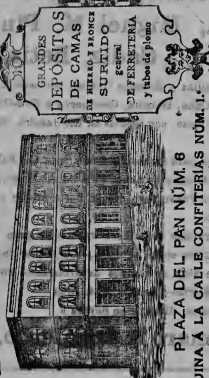 GRANDES
DEPÓSITOS
DE CAMAS
DE HIERRO Y BRONCE
SURTIDO
general
DE FERRETERIA
y tubos de plomo
PLAZA DEL PAN NÚM. 6
UINA A LA CALLE CONFITERIAS NÚM. 1.